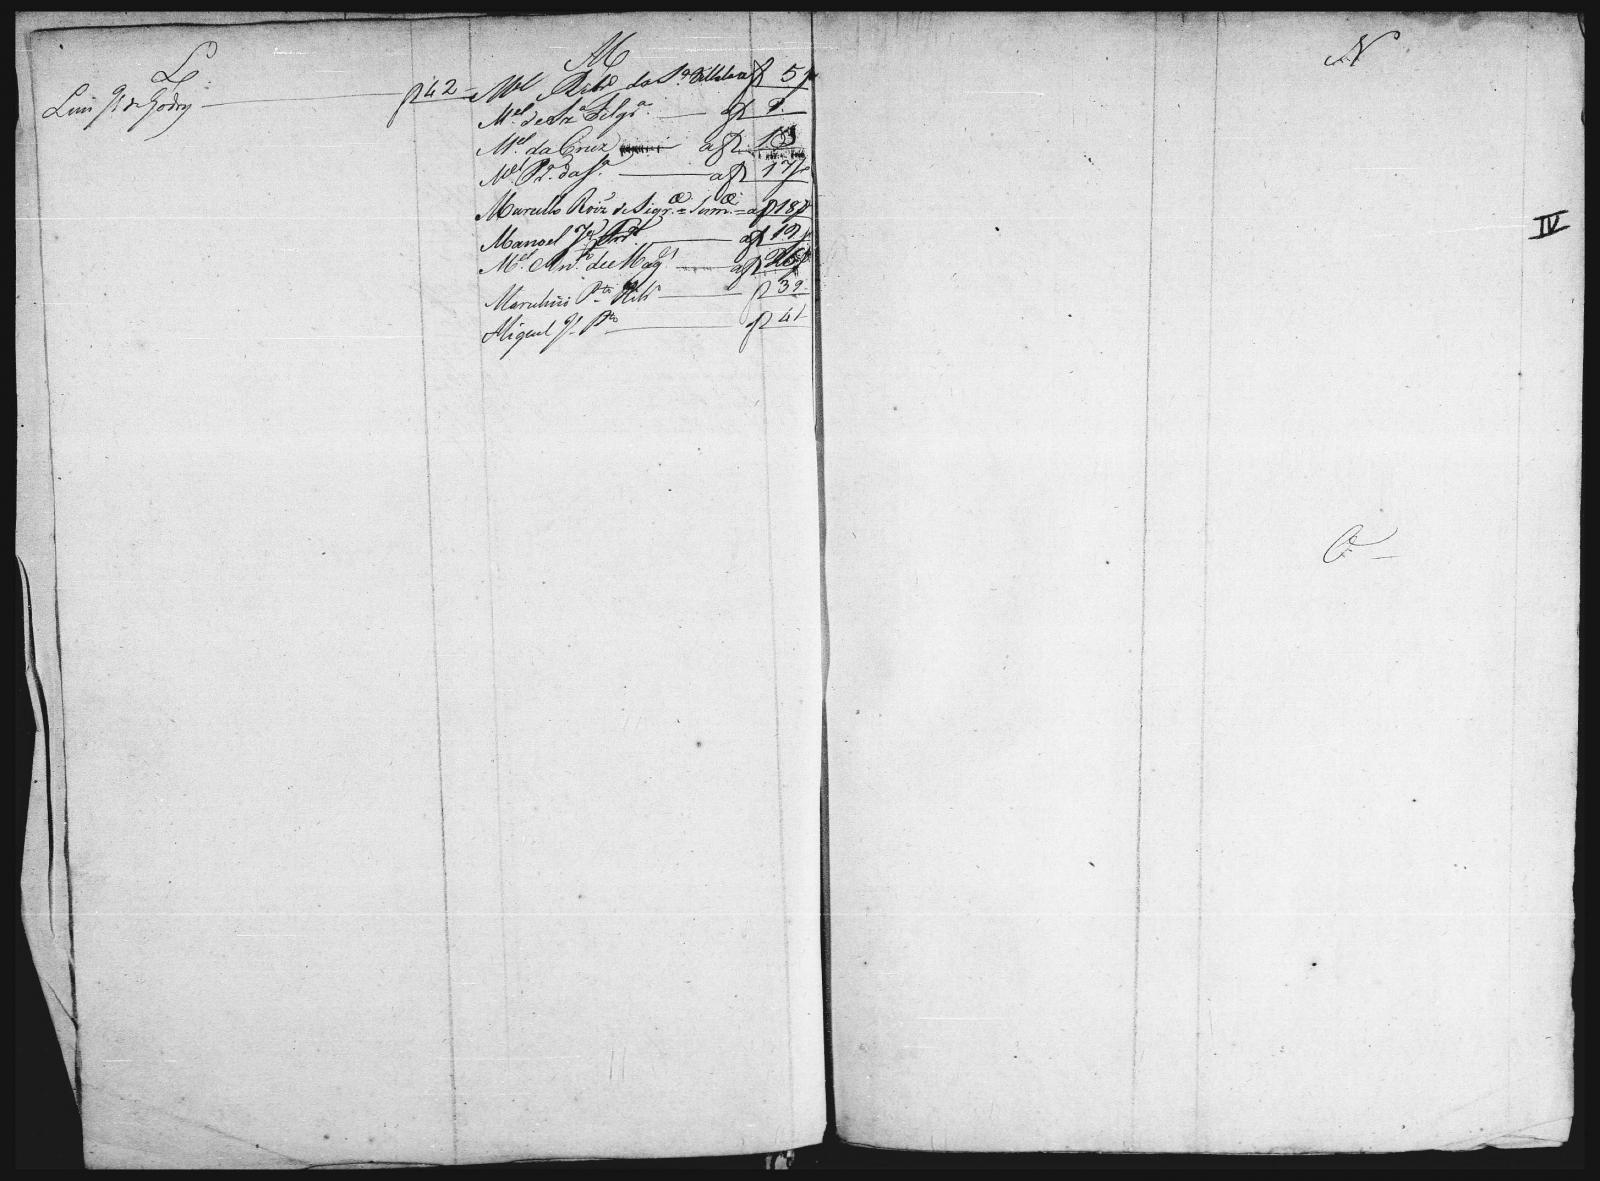 L
Luis J. de Godoy f 42
M
Mel Ribr.o da S.a Villela a f 5
M.el de Sz.a Felgr.a a f 9.
M.el da Cruz a f 15
M.el Pr.a da S.a a f 17
Marcello Roiz de Siqr.a = = a f 18
Manoel a f 19
M.el Ant.o de Mag. a f 26
Marcelino Pt.o Rib.o f 39.
Miguel J. Pt.o f 41
N
O
IV